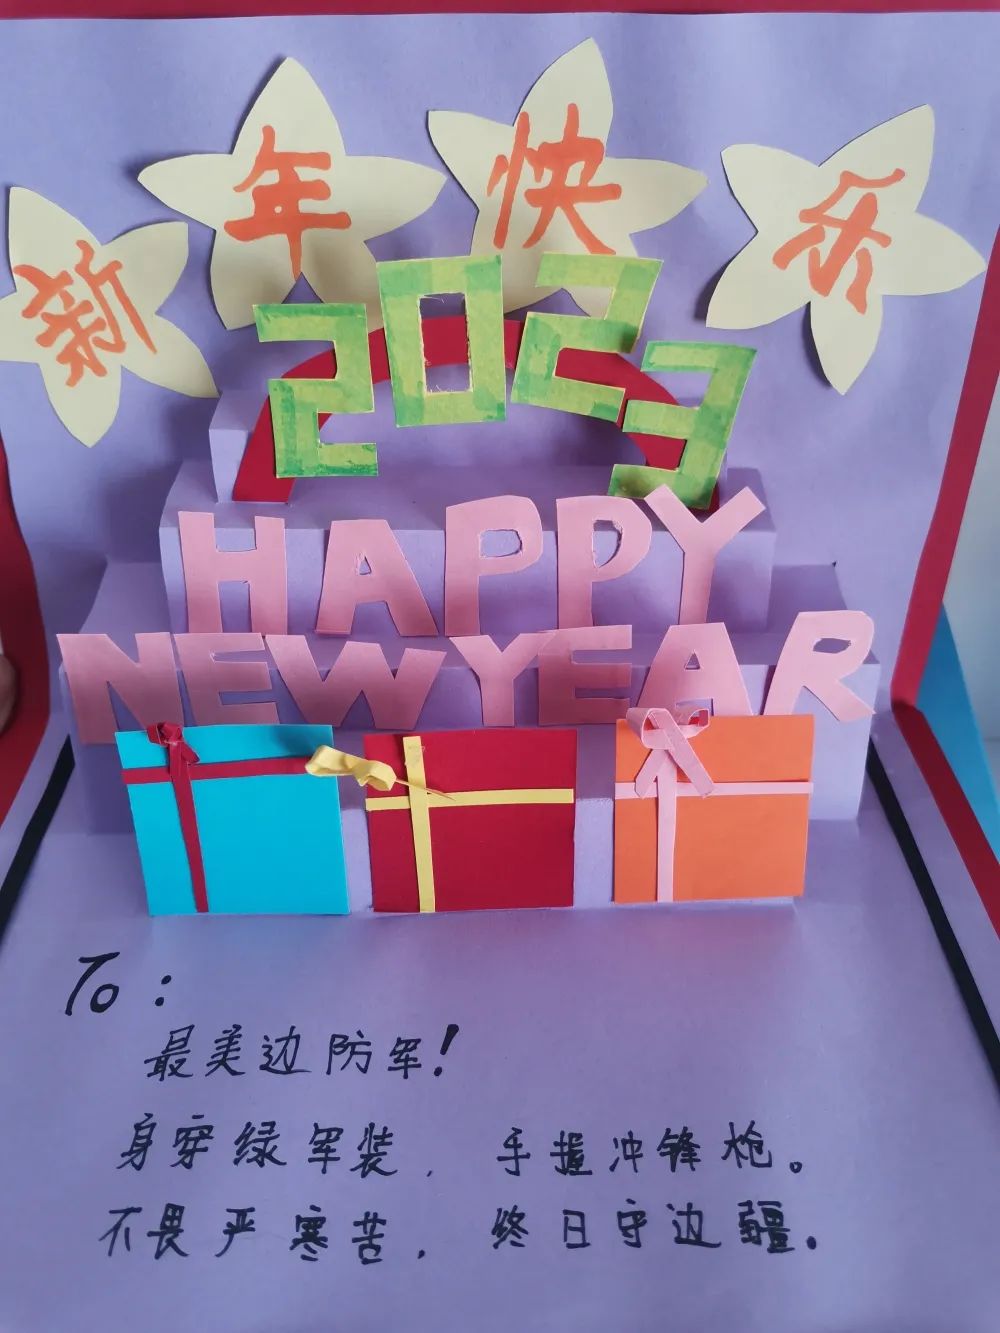 新年快乐
2023
HAPPY
NEWYEAR
To：
最美边防军！
身穿绿军装，手握冲锋枪。
不畏严寒苦，终日守边疆。